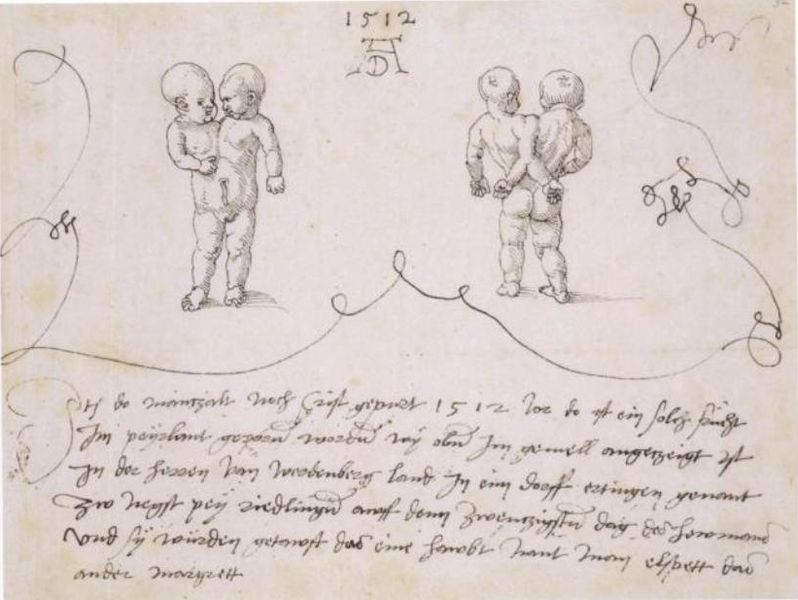 1512
AD
Itē do man tzalt noch Crist gepurt 1512 Jor do ist ein solch frücht
Im peyrlant geporn worden wy obn Im gemell angetzeigt ist
In der herren van werdenberg land In eim dorff ertingen genant
zw negst pey riedlingen awff denn zwentzigsten dag des hewmons
vnd sy würden getawft das eine hawbt nant man elspett das
ander margrett